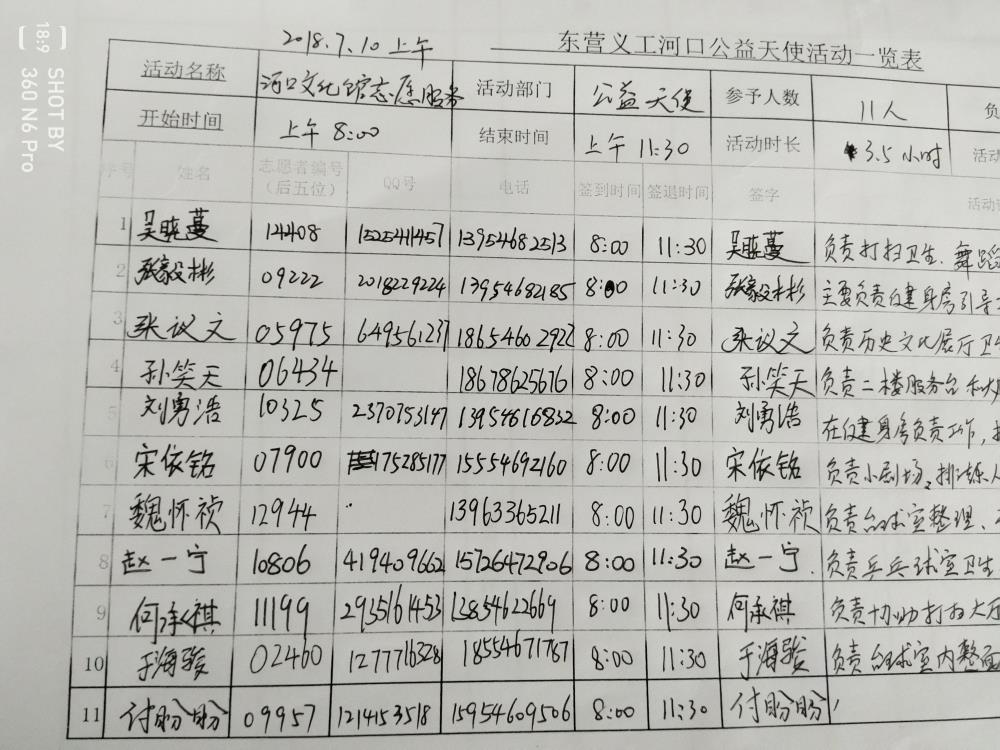 2018.7.10 上午 东营义工河口公益天使活动一览表
活动名称 河口文化馆志愿服务 活动部门 公益天使 参予人数 11人 负
开始时间 上午 8:00 结束时间 上午 11:30 活动时长 3.5小时 活动
序号 姓名 志愿者编号（后五位） QQ号 电话 签到时间 签退时间 签字 活动
1 吴晓蔓 14408 1525411457 13954682513 8:00 11:30 吴晓蔓 负责打扫卫生、舞蹈
2 张毅彬 09222 2018229224 13954682185 8:00 11:30 张毅彬 主要负责健身房引导
3 张议文 05975 649561237 18654602922 8:00 11:30 张议文 负责历史文化展厅卫生
4 孙笑天 06434 18678625676 8:00 11:30 孙笑天 负责二楼服务台
5 刘勇浩 10325 2370753147 13954616832 8:00 11:30 刘勇浩 在健身房负责工作，
6 宋依铭 07900 175285177 15554692160 8:00 11:30 宋依铭 负责小剧场，排练
7 魏怀祯 12944 13963365211 8:00 11:30 魏怀祯 负责台球室整理、
8 赵一宁 10806 419409662 15726472906 8:00 11:30 赵一宁 负责乒乓球室卫生
9 何承祺 11199 2935161453 13854622669 8:00 11:30 何承祺 负责协助打扫大厅
10 于海骏 02460 1277716328 18554671787 8:00 11:30 于海骏 负责台球室内整
11 付盼盼 09957 1214153518 15954609506 8:00 11:30 付盼盼
18:9
SHOT BY
360 N6 Pro